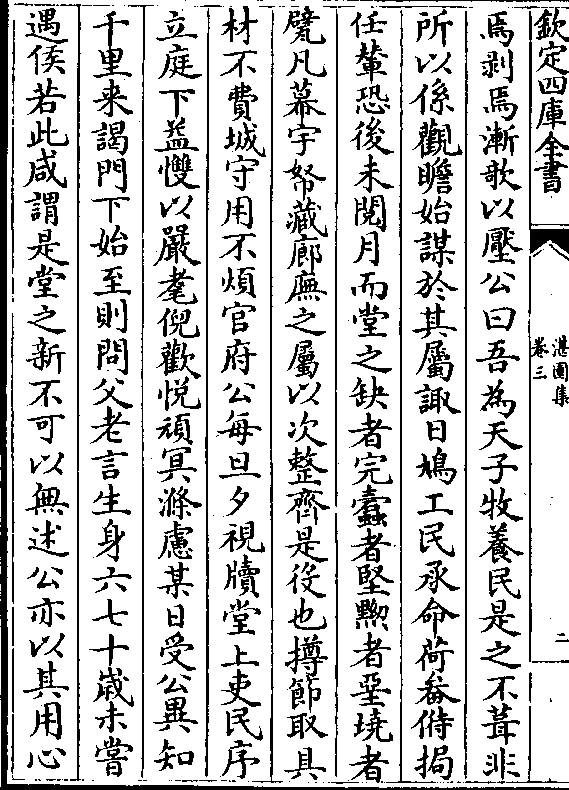 欽定四庫全書
湛園集
卷三
二
焉剥焉漸欹以壓公曰吾為天子牧養民是之不葺非
所以係觀瞻始謀於其屬諏日鳩工民承命荷畚偫挶
任輦恐後未閱月而堂之缺者完蠧者堅黦者堊墝者
甓凡幕宇帑藏廊廡之屬以次整齊是役也撙節取具
材不費城守用不煩官府公每旦夕視牘堂上吏民序
立庭下益㦬以嚴耄倪歡悅頑冥滌慮某日受公異知
千里来謁門下始至則問父老言生身六七十嵗未嘗
遇侯若此咸謂是堂之新不可以無述公亦以其用心